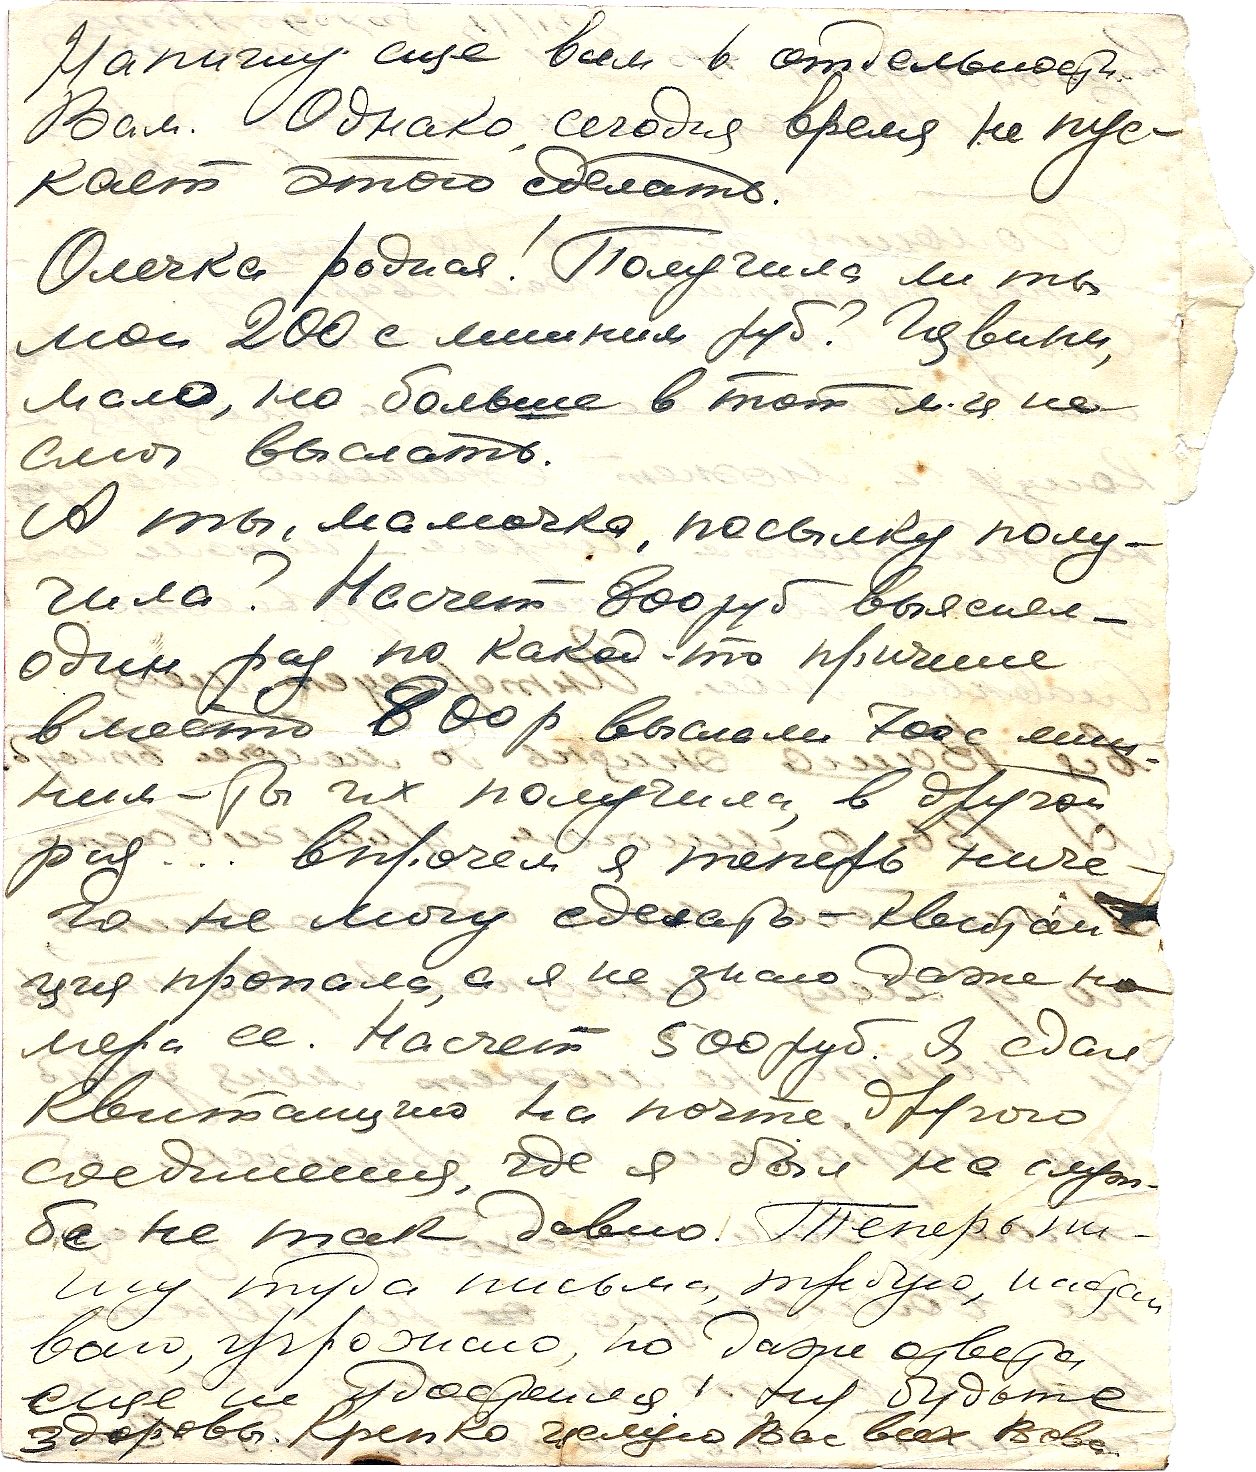 Напишу еще вам в отдельности
Вам. Однако, сегодня время не пус-
кает этого сделать.
Олечка родная! Получила ли ты
мои 200 с лишним руб? Извини,
мало, но больше в тот м-ц не
смог выслать.
А ты, мамочка, посылку полу-
чила? Насчет 800 руб выяснял-
один раз по какой-то причине
вместо 800 р выслали 700 с лиш-
ним - Ты их получила, в другой
раз... впрочем я теперь ниче-
го не могу сделать - квитан-
ция пропала, а я не знаю даже но-
мера ее. Насчет 500 руб. Я сдал
квитанцию на почте другого
соединения, где я был на служ-
бе не так давно. Теперь пи-
шу туда письма, требую, настаи
ваю, угрожаю, но даже ответа
еще не удостоился! Ну будьте
здоровы. Крепко целую Вас всех Вова